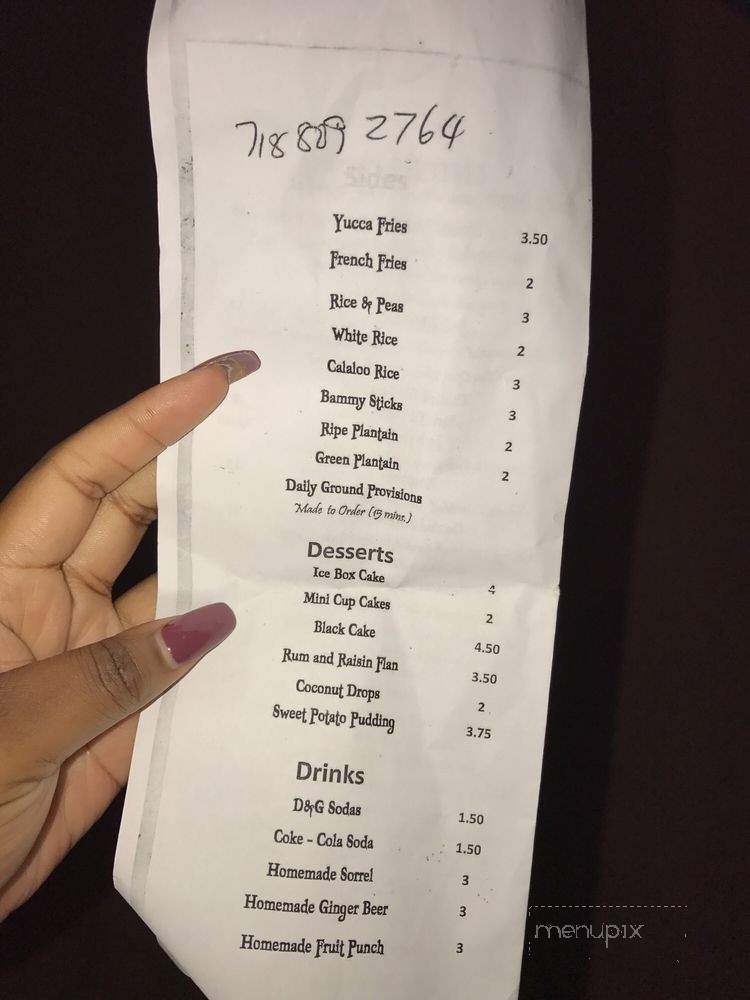 718 889 2764
Sides
Yucca Fries 3.50
French Fries 2
Rice & Peas 3
White Rice 2
Calaloo Rice 3
Bammy Sticks 3
Ripe Plantain 2
Green Plantain 2
Daily Ground Provisions
Made to Order (15 mins.)
Desserts
Ice Box Cake 4
Mini Cup Cakes 2
Black Cake 4.50
Rum and Raisin Flan 3.50
Coconut Drops 2
Sweet Potato Pudding 3.75
Drinks
D&G Sodas 1.50
Coke - Cola Soda 1.50
Homemade Sorrel 3
Homemade Ginger Beer 3
Homemade Fruit Punch 3
menupix